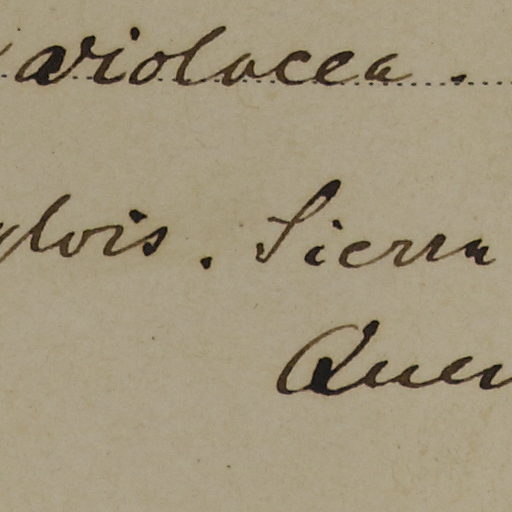 violacea .
ylvis . Sierra
Quer